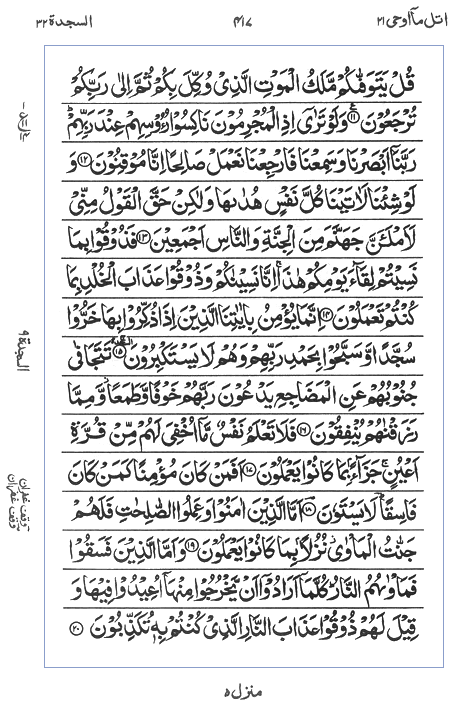 اتل مآ اوحی ۲۱
۴۱۷
السجدة ۳۲
قُلْ يَتَوَفّٰىكُمْ مَّلَكُ الْمَوْتِ الَّذِىْ وُكِّلَ بِكُمْ ثُمَّ اِلٰى رَبِّكُمْ
تُرْجَعُوْنَ ۱۱ وَلَوْ تَرٰٓى اِذِ الْمُجْرِمُوْنَ نَاكِسُوْا رُءُوْسِهِمْ عِنْدَ رَبِّهِمْ
رَبَّنَآ اَبْصَرْنَا وَسَمِعْنَا فَارْجِعْنَا نَعْمَلْ صَالِحًا اِنَّا مُوْقِنُوْنَ ۱۲ وَ
لَوْ شِئْنَا لَاٰتَيْنَا كُلَّ نَفْسٍ هُدٰىهَا وَلٰكِنْ حَقَّ الْقَوْلُ مِنِّىْ
لَاَمْلَئَنَّ جَهَنَّمَ مِنَ الْجِنَّةِ وَالنَّاسِ اَجْمَعِيْنَ ۱۳ فَذُوْقُوْا بِمَا
نَسِيْتُمْ لِقَآءَ يَوْمِكُمْ هٰذَا ۚ اِنَّا نَسِيْنٰكُمْ وَذُوْقُوْا عَذَابَ الْخُلْدِ بِمَا
كُنْتُمْ تَعْمَلُوْنَ ۱۴ اِنَّمَا يُؤْمِنُ بِاٰيٰتِنَا الَّذِيْنَ اِذَا ذُكِّرُوْا بِهَا خَرُّوْا
سُجَّدًا وَّسَبَّحُوْا بِحَمْدِ رَبِّهِمْ وَهُمْ لَا يَسْتَكْبِرُوْنَ ۱۵ تَتَجَافٰى
جُنُوْبُهُمْ عَنِ الْمَضَاجِعِ يَدْعُوْنَ رَبَّهُمْ خَوْفًا وَّطَمَعًا وَّمِمَّا
رَزَقْنٰهُمْ يُنْفِقُوْنَ ۱۶ فَلَا تَعْلَمُ نَفْسٌ مَّآ اُخْفِىَ لَهُمْ مِّنْ قُرَّةِ
اَعْيُنٍ ۚ جَزَآءًۢ بِمَا كَانُوْا يَعْمَلُوْنَ ۱۷ اَفَمَنْ كَانَ مُؤْمِنًا كَمَنْ كَانَ
فَاسِقًا ؕ لَا يَسْتَوٗنَ ۱۸ اَمَّا الَّذِيْنَ اٰمَنُوْا وَعَمِلُوا الصّٰلِحٰتِ فَلَهُمْ
جَنّٰتُ الْمَاْوٰى نُزُلًاۢ بِمَا كَانُوْا يَعْمَلُوْنَ ۱۹ وَاَمَّا الَّذِيْنَ فَسَقُوْا
فَمَاْوٰىهُمُ النَّارُ ؕ كُلَّمَآ اَرَادُوْٓا اَنْ يَّخْرُجُوْا مِنْهَآ اُعِيْدُوْا فِيْهَا وَ
قِيْلَ لَهُمْ ذُوْقُوْا عَذَابَ النَّارِ الَّذِىْ كُنْتُمْ بِهٖ تُكَذِّبُوْنَ ۲۰
السجدة ۹
وقف غفران
وقف غفران
منزل ۵